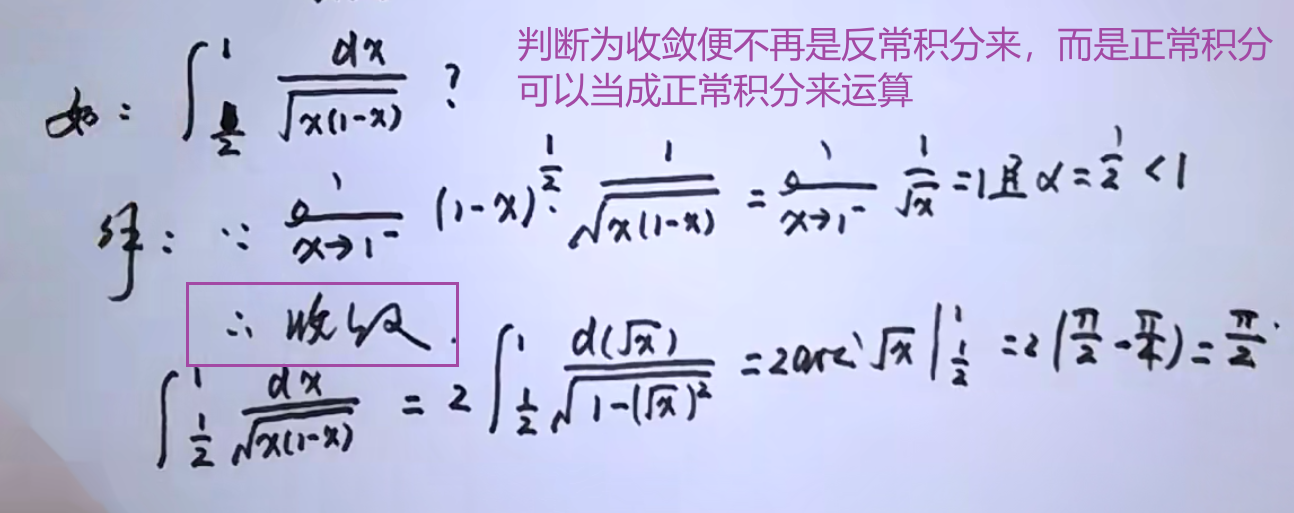 判断为收敛便不再是反常积分来，而是正常积分
可以当成正常积分来运算
如：∫_{1/2}^{1} dx/√(x(1-x)) ?
解：∵ lim_{x→1⁻} (1-x)^{1/2}·1/√(x(1-x)) = lim_{x→1⁻} 1/√x = 1 且 α = 1/2 < 1
∴ 收敛.
∫_{1/2}^{1} dx/√(x(1-x)) = 2∫_{1/2}^{1} d(√x)/√(1-(√x)²) = 2arc √x |_{1/2}^{1} = 2(π/2 - π/4) = π/2.